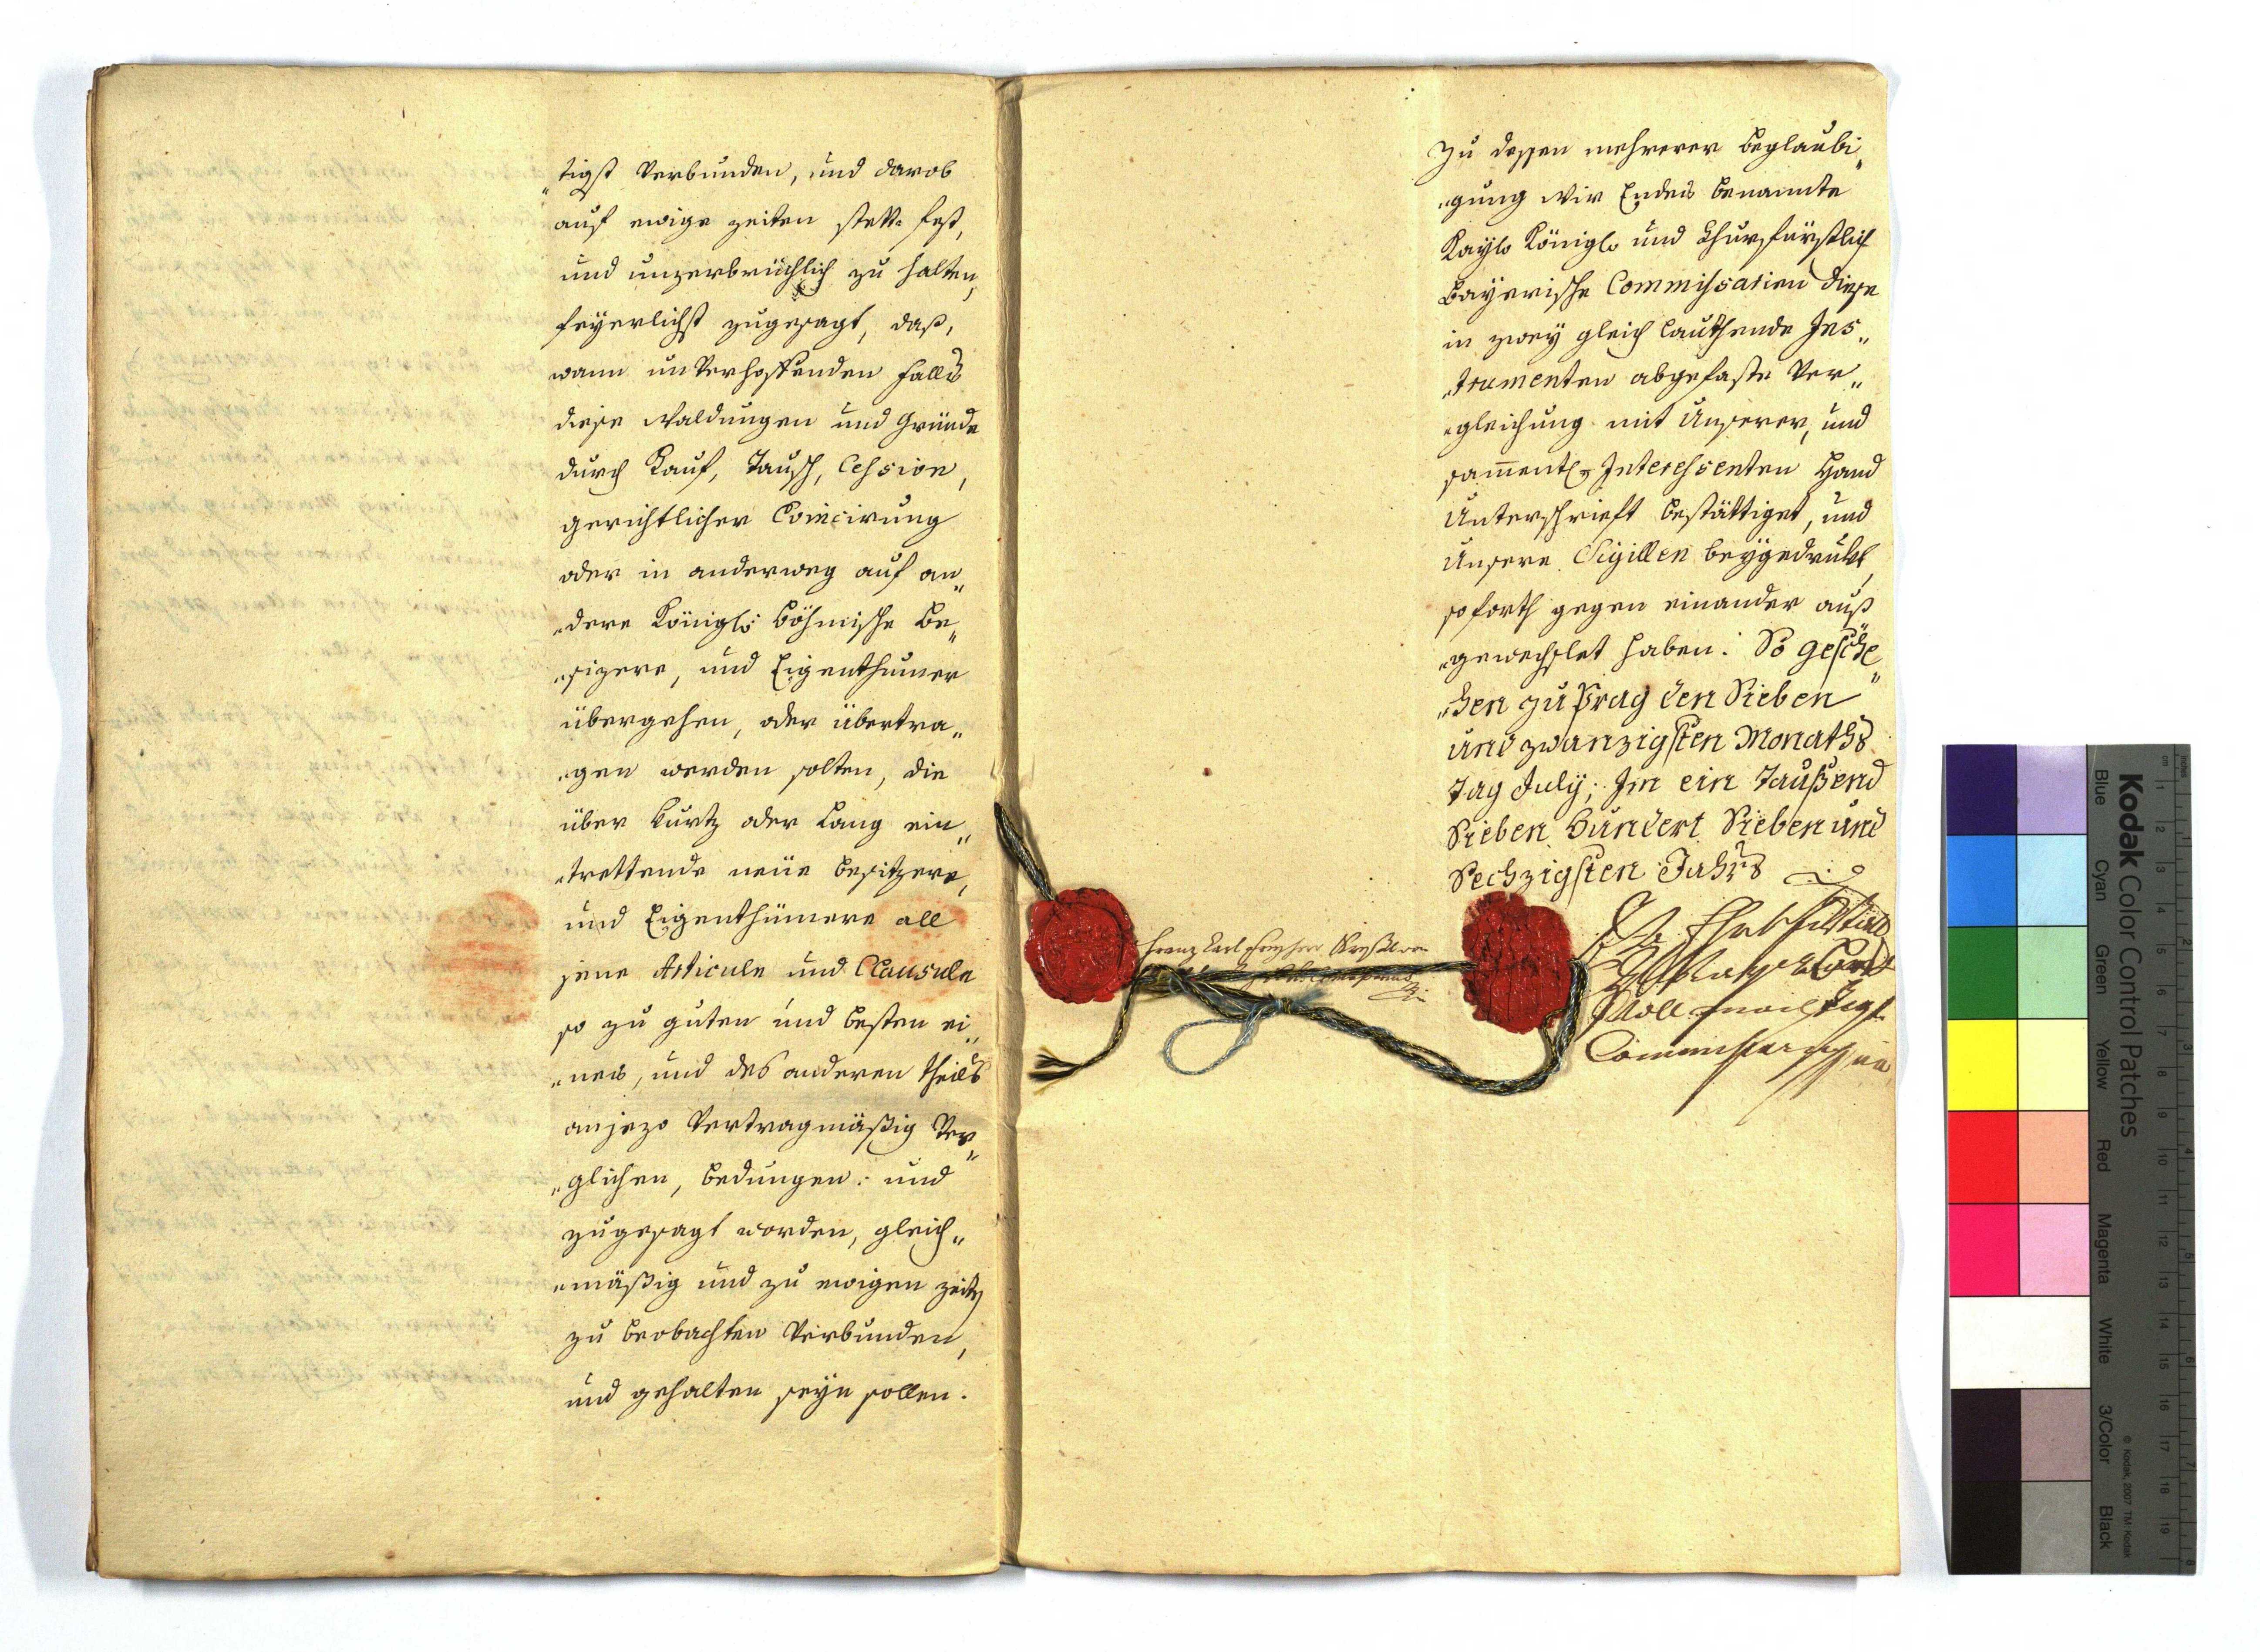 „tigst Verbunden, und darob
auf ewige zeiten stett- fest,
und unzerbrüchlich zu halten,
feyerlichst zugesagt, daß,
wann unverhoffenden falls
diese Waldungen und Gründe
durch Kauf, Tausch, Cession,
gerichtlicher
oder in anderweg auf an„
„dere Königl: Böhmische Be„
„sizere, und Eigenthumer
übergehen, oder übertra„
„gen werden solten, die
über kurtz oder lang ein„
„trettende neüe besitzere,
und Eigenthümere all
jene Articule und Clausule
so zu guten und besten ei„
„nes, und des anderen theils
anjezo Vertragmäßig Ver„
„glichen, bedungen: und
zugesagt worden, gleich„
„mäßig und zu ewigen zeiten
zu beobachten Verbunden,
und gehalten seyn sollen.
Zu dessen mehrerer beglaubi„
„gung Wir Endes benannte
Kayl: Königl: und Churfürstlich
Bayerische Commissarien diese
in zwey gleich lauthende Ins„
„trumenten abgefaste Ver„
„gleichung mit Unserer, und
samentl: Interessenten Hand
Unterschrieft bestättiget, und
Unsere Sigillen beygedrukt,
soforth gegen einander auß„
„gewechslet haben: So gesche„
„hen zu Prag den Sieben
und zwanzigsten Monaths
Tag July; Im ein Taußend
Sieben Hundert Sieben und
Sechzigsten Jahrs
Franz Carl Freyherr Kreßl von
Kodak Color Control Patches
Blue Cyan Green Yellow Red Magenta White 3/Color Black
© Kodak, 2007 TM: Kodak
cm 1 2 3 4 5 6 7 8 9 10 11 12 13 14 15 16 17 18 19
inches 1 2 3 4 5 6 7 8